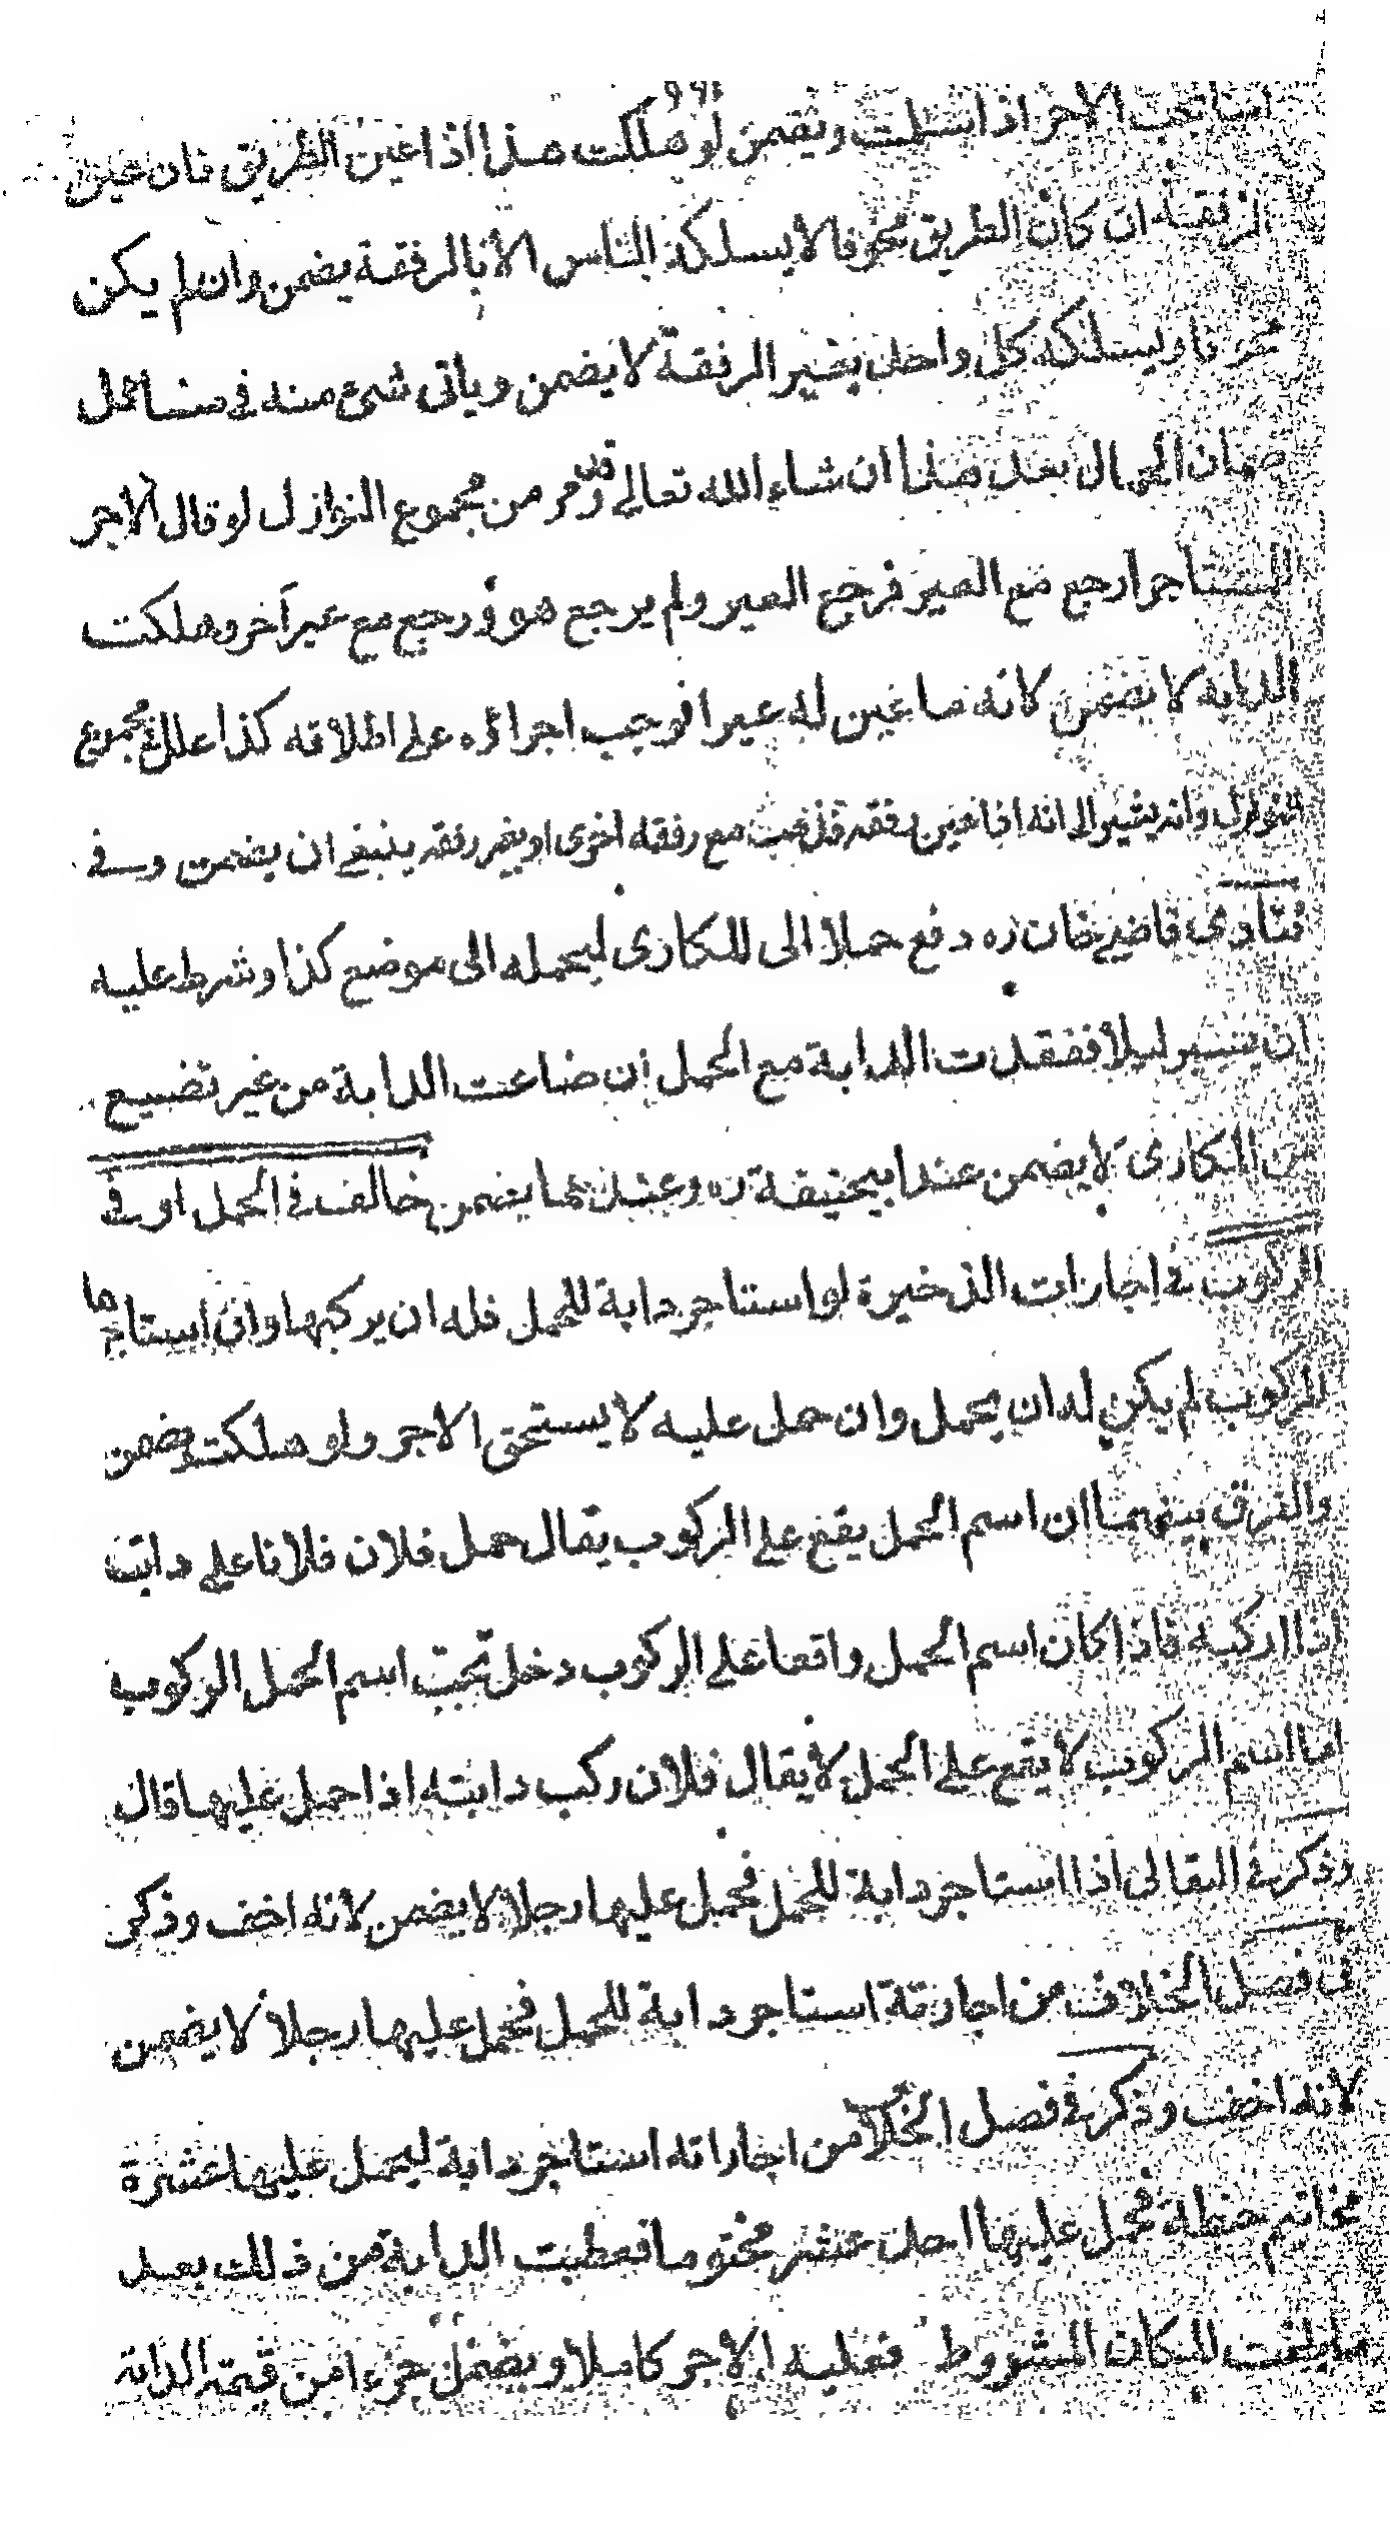 انما يجب الاجر اذا سلمت ويضمن لو هلكت هذا اذا عين الطريق فان عين
الرفقة ان كان الطريق مخوفا لا يسلكه الناس الا بالرفقة يضمن وان لم يكن
مخوفا ويسلكه كل واحد بغير الرفقة لا يضمن وياتى شىء منه فى مسائل
ضمان الحمال بعد هذا ان شاء الله تعالى من مجموع النوازل لو قال الاجر
للمستاجر ارجع مع العير فرجع العير ولم يرجع هو ورجع مع عير آخر وهلكت
الدابة لا يضمن لانه ما عين له عيرا فوجب اجراؤه على اطلاقه كذا علل فى مجموع
النوازل وانه يشير الى انه اذا عين رفقه فذهب مع رفقه اخرى او بغير رفقه ينبغى ان يضمن وفى
فتاوى قاضى خان ره دفع حملا الى المكارى ليحمله الى موضع كذا وشرط عليه
ان يسير ليلا ففقدت الدابة مع الحمل ان ضاعت الدابة من غير تضييع
من المكارى لا يضمن عند ابيحنيفة ره وعندهما يضمن خالف فى الحمل او فى
الركوب فى اجارات الذخيرة لو استاجر دابة للحمل فله ان يركبها وان استاجرها
للركوب لم يكن له ان يحمل وان حمل عليه لا يستحق الاجر ولو هلكت يضمن
والفرق بينهما ان اسم الحمل يقع على الركوب يقال حمل فلان فلانا على دابته
اذا اركبه فاذا كان اسم الحمل واقعا على الركوب دخل تحت اسم الحمل الركوب
اما اسم الركوب لا يقع على الحمل لا يقال فلان ركب دابته اذا حمل عليها قال
وذكر فى البقالى اذا استاجر دابة للحمل فحمل عليها رجلا لا يضمن لانه اخف وذكر
فى فصل الخلاف من اجارته استاجر دابة للحمل فحمل عليها رجلا لا يضمن
لانه اخف وذكر فى فصل الخلاف من اجاراته استاجر دابة ليحمل عليها عشرة
مخاتيم حنطة فحمل عليها احد عشر مختوما فعطبت الدابة من ذلك بعد
ما بلغت المكان المشروط فعليه الاجر كاملا ويضمن جزءا من قيمة الدابة